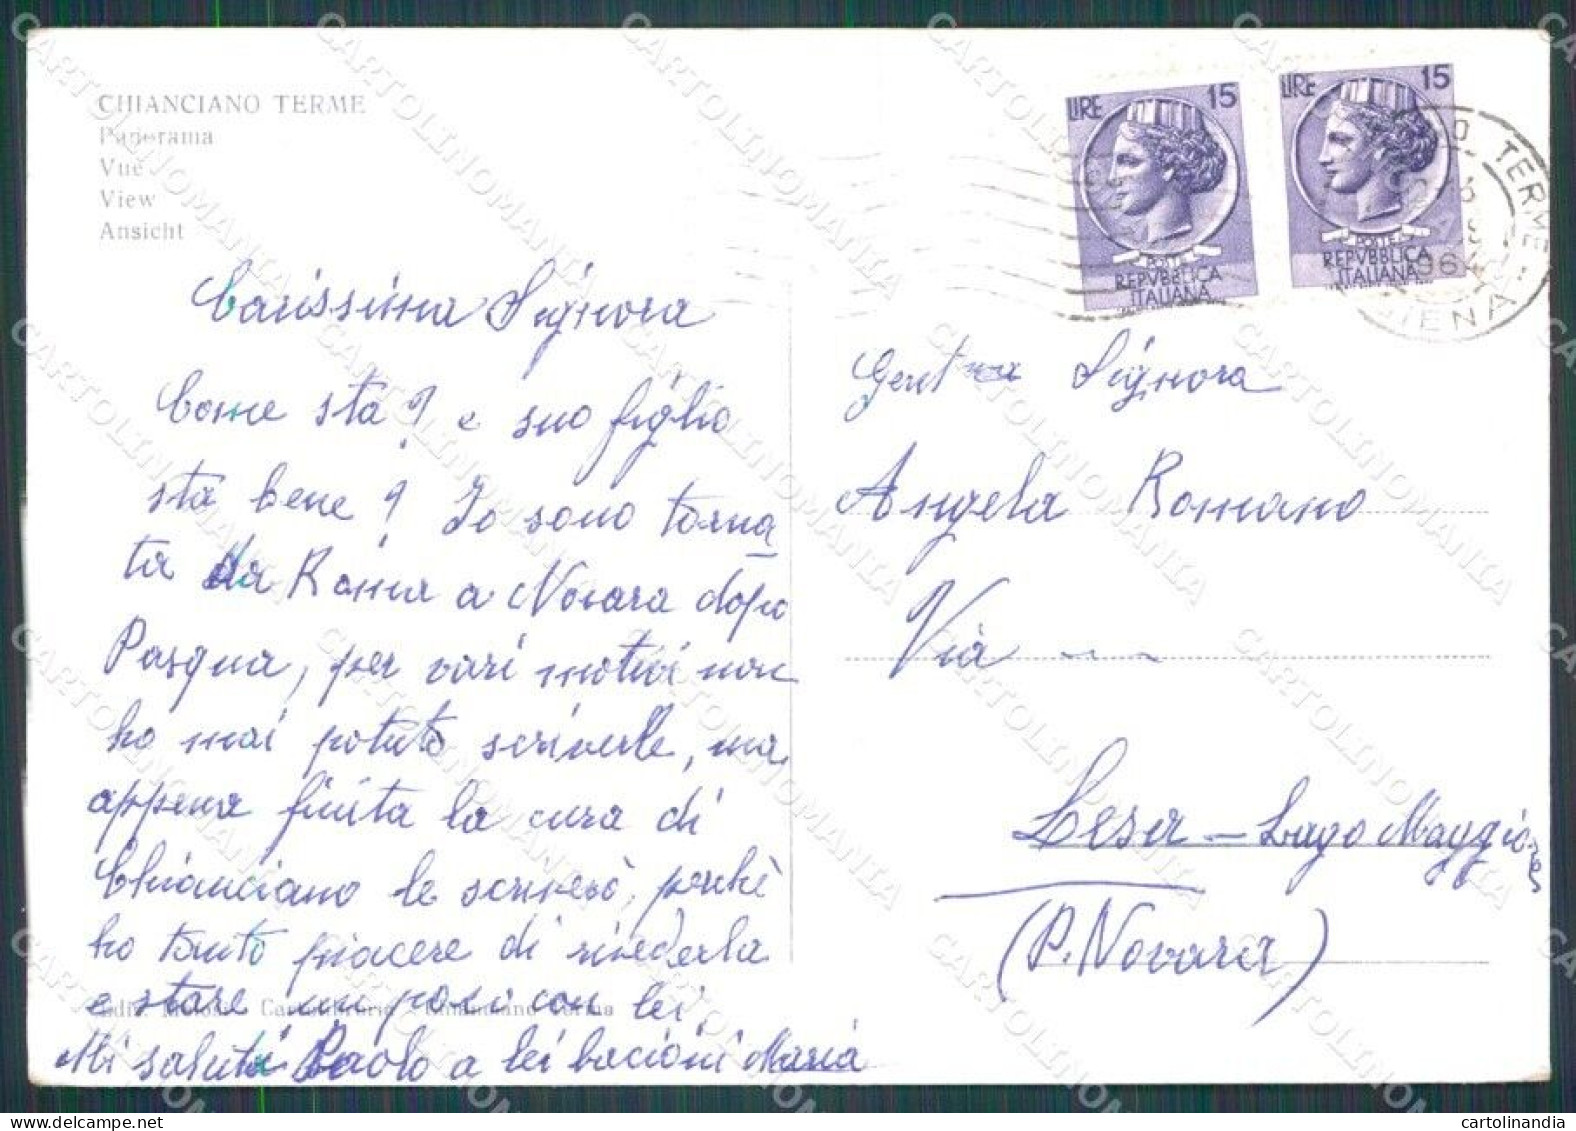 CHIANCIANO TERME
Panorama
Vue
View
Ansicht
LIRE 15
POSTE
REPVBBLICA
ITALIANA
LIRE 15
POSTE
REPVBBLICA
ITALIANA
O TERME
SIENA
Carissima Signora
Come sta? e suo figlio
sta bene? Io sono torna
ta da Roma a Novara dopo
Pasqua, per vari motivi non
ho mai potuto scriverle, ma
appena finita la cura di
Chianciano le scriverò, perchè
ho tanto piacere di rivederla
e stare un poco con lei
Mi saluti Paolo a lei bacioni Maria
Gent ma Signora
Angela Romano
Via
Lesa - Lago Maggiore
(P. Novara)
CARTOLINOMANIA
cartolinandia